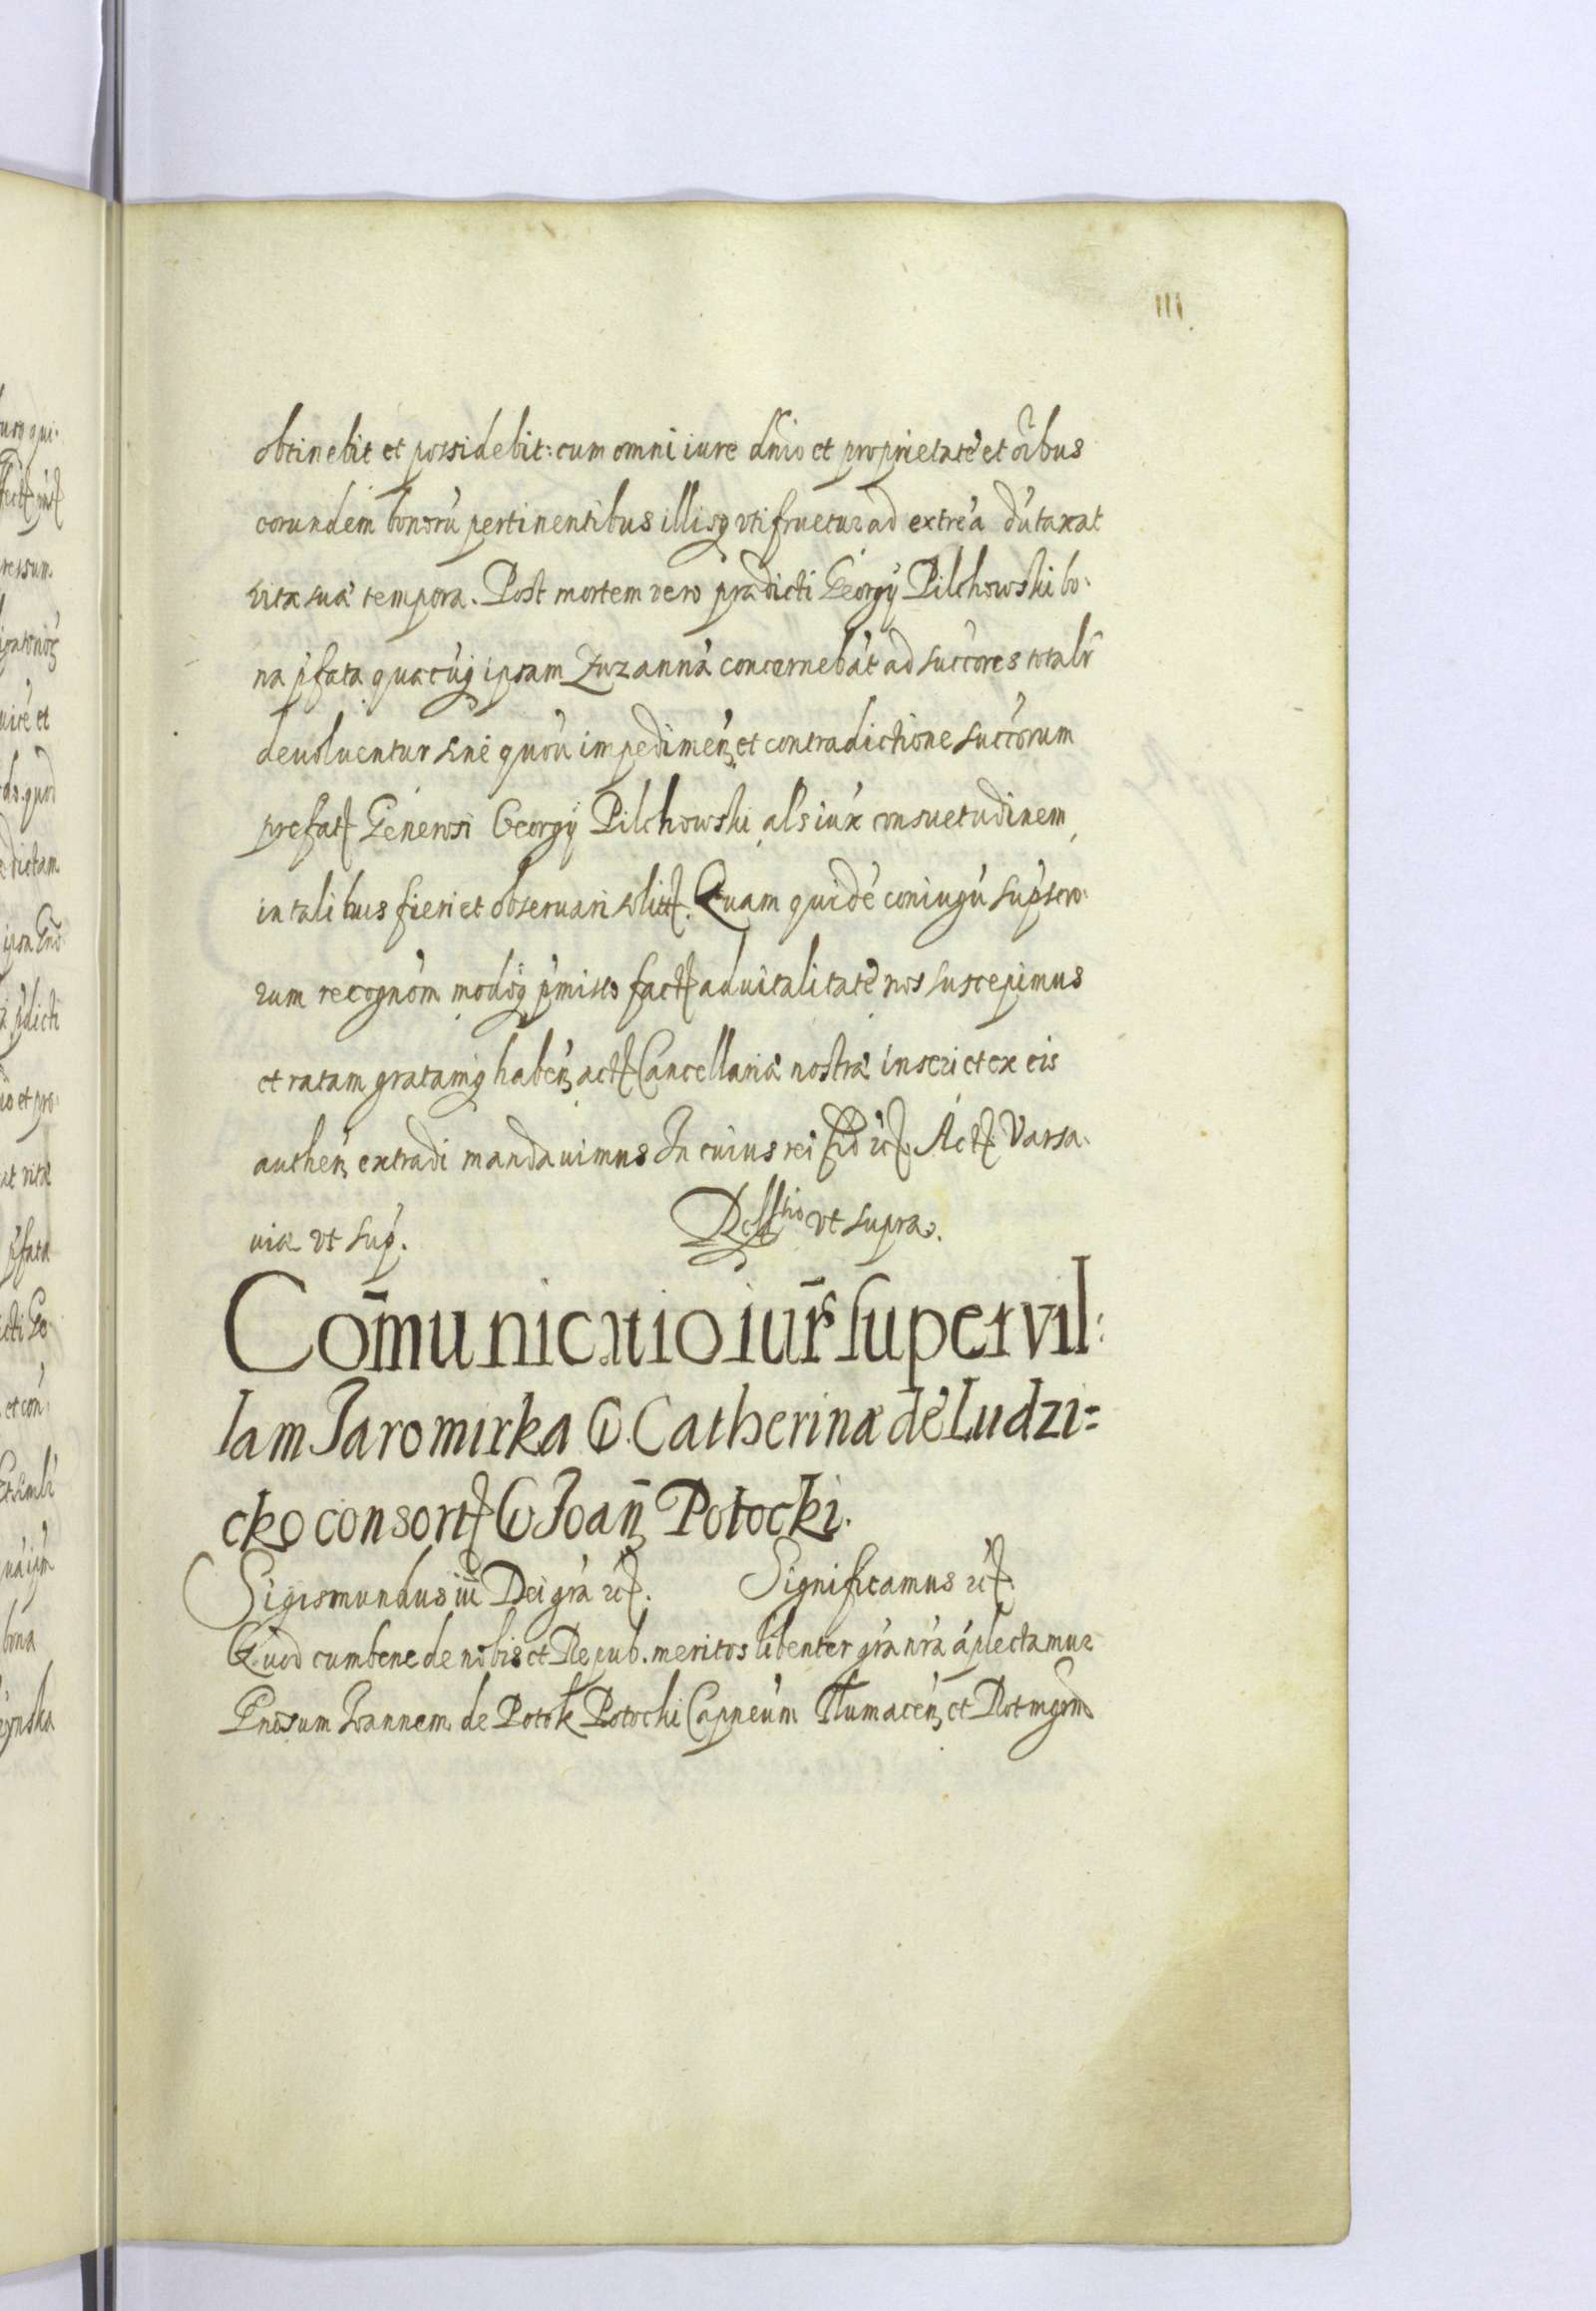 111.
obtinebit et possidebit: cum omni iure dnio et proprietate et oibus
eorundem bonorũ pertinentibus illisq vtifruetur ad extrea dũtaxat
vitæ suæ tempora. Post mortem vero prædicti Georgÿ Pilchowski bo:
na pfata quæcũq ipsam Zuzannã concernebãt ad succores totalr
deuoluentur sine quouis impedimen et contradictione succorum
prefat Generosi Georgÿ Pilchowski als iux consuetudinem
in talibus fieri et obseruari solit. Quam quidẽ coniugũ supscrp:
rum recognom modoq pmisso fact aduitalitatẽ nos suscepimus
et ratam gratamq haben act Cancellariæ nostræ inseri et ex eis
authen extradi mandauimus In cuius rei fid etc. Act Varsa:
uiæ vt sup. Relatio vt supra.
Com̃unicatio iur̃s super vil:
lam Jaromirka G. Catherinæ de Ludzi=
cko consort G Joan̄ Potocki.
Sigismundus iii Dei gra etc. Significamus etc
Quod cum bene de nobis et Repub. meritos libenter gra nra aplectamur
Gnosum Joannem de Potok Potocki Capneum Tlumacen et Rotmgrm